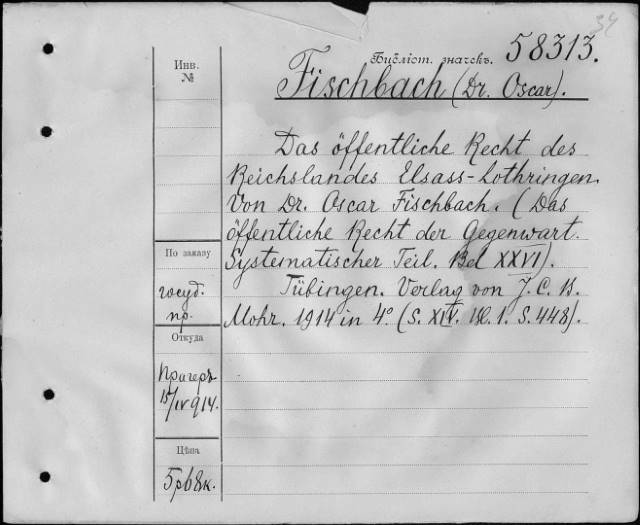 34
Библіот. значекъ. 58313.
Инв.
№
Fischbach (Dr. Oscar).
Das öffentliche Recht des
Reichslandes Elsass-Lothringen.
Von Dr. Oscar Fischbach. (Das
öffentliche Recht der Gegenwart.
Systematischer Teil. Bd XXVI).
Tübingen. Verlag von J. C. B.
Mohr. 1914 in 4° (S. XIV. Bl. 1. S. 448).
По заказу
госуд.
пр.
Откуда
Прагеръ
15/IV 914.
Цѣна
5р68к.